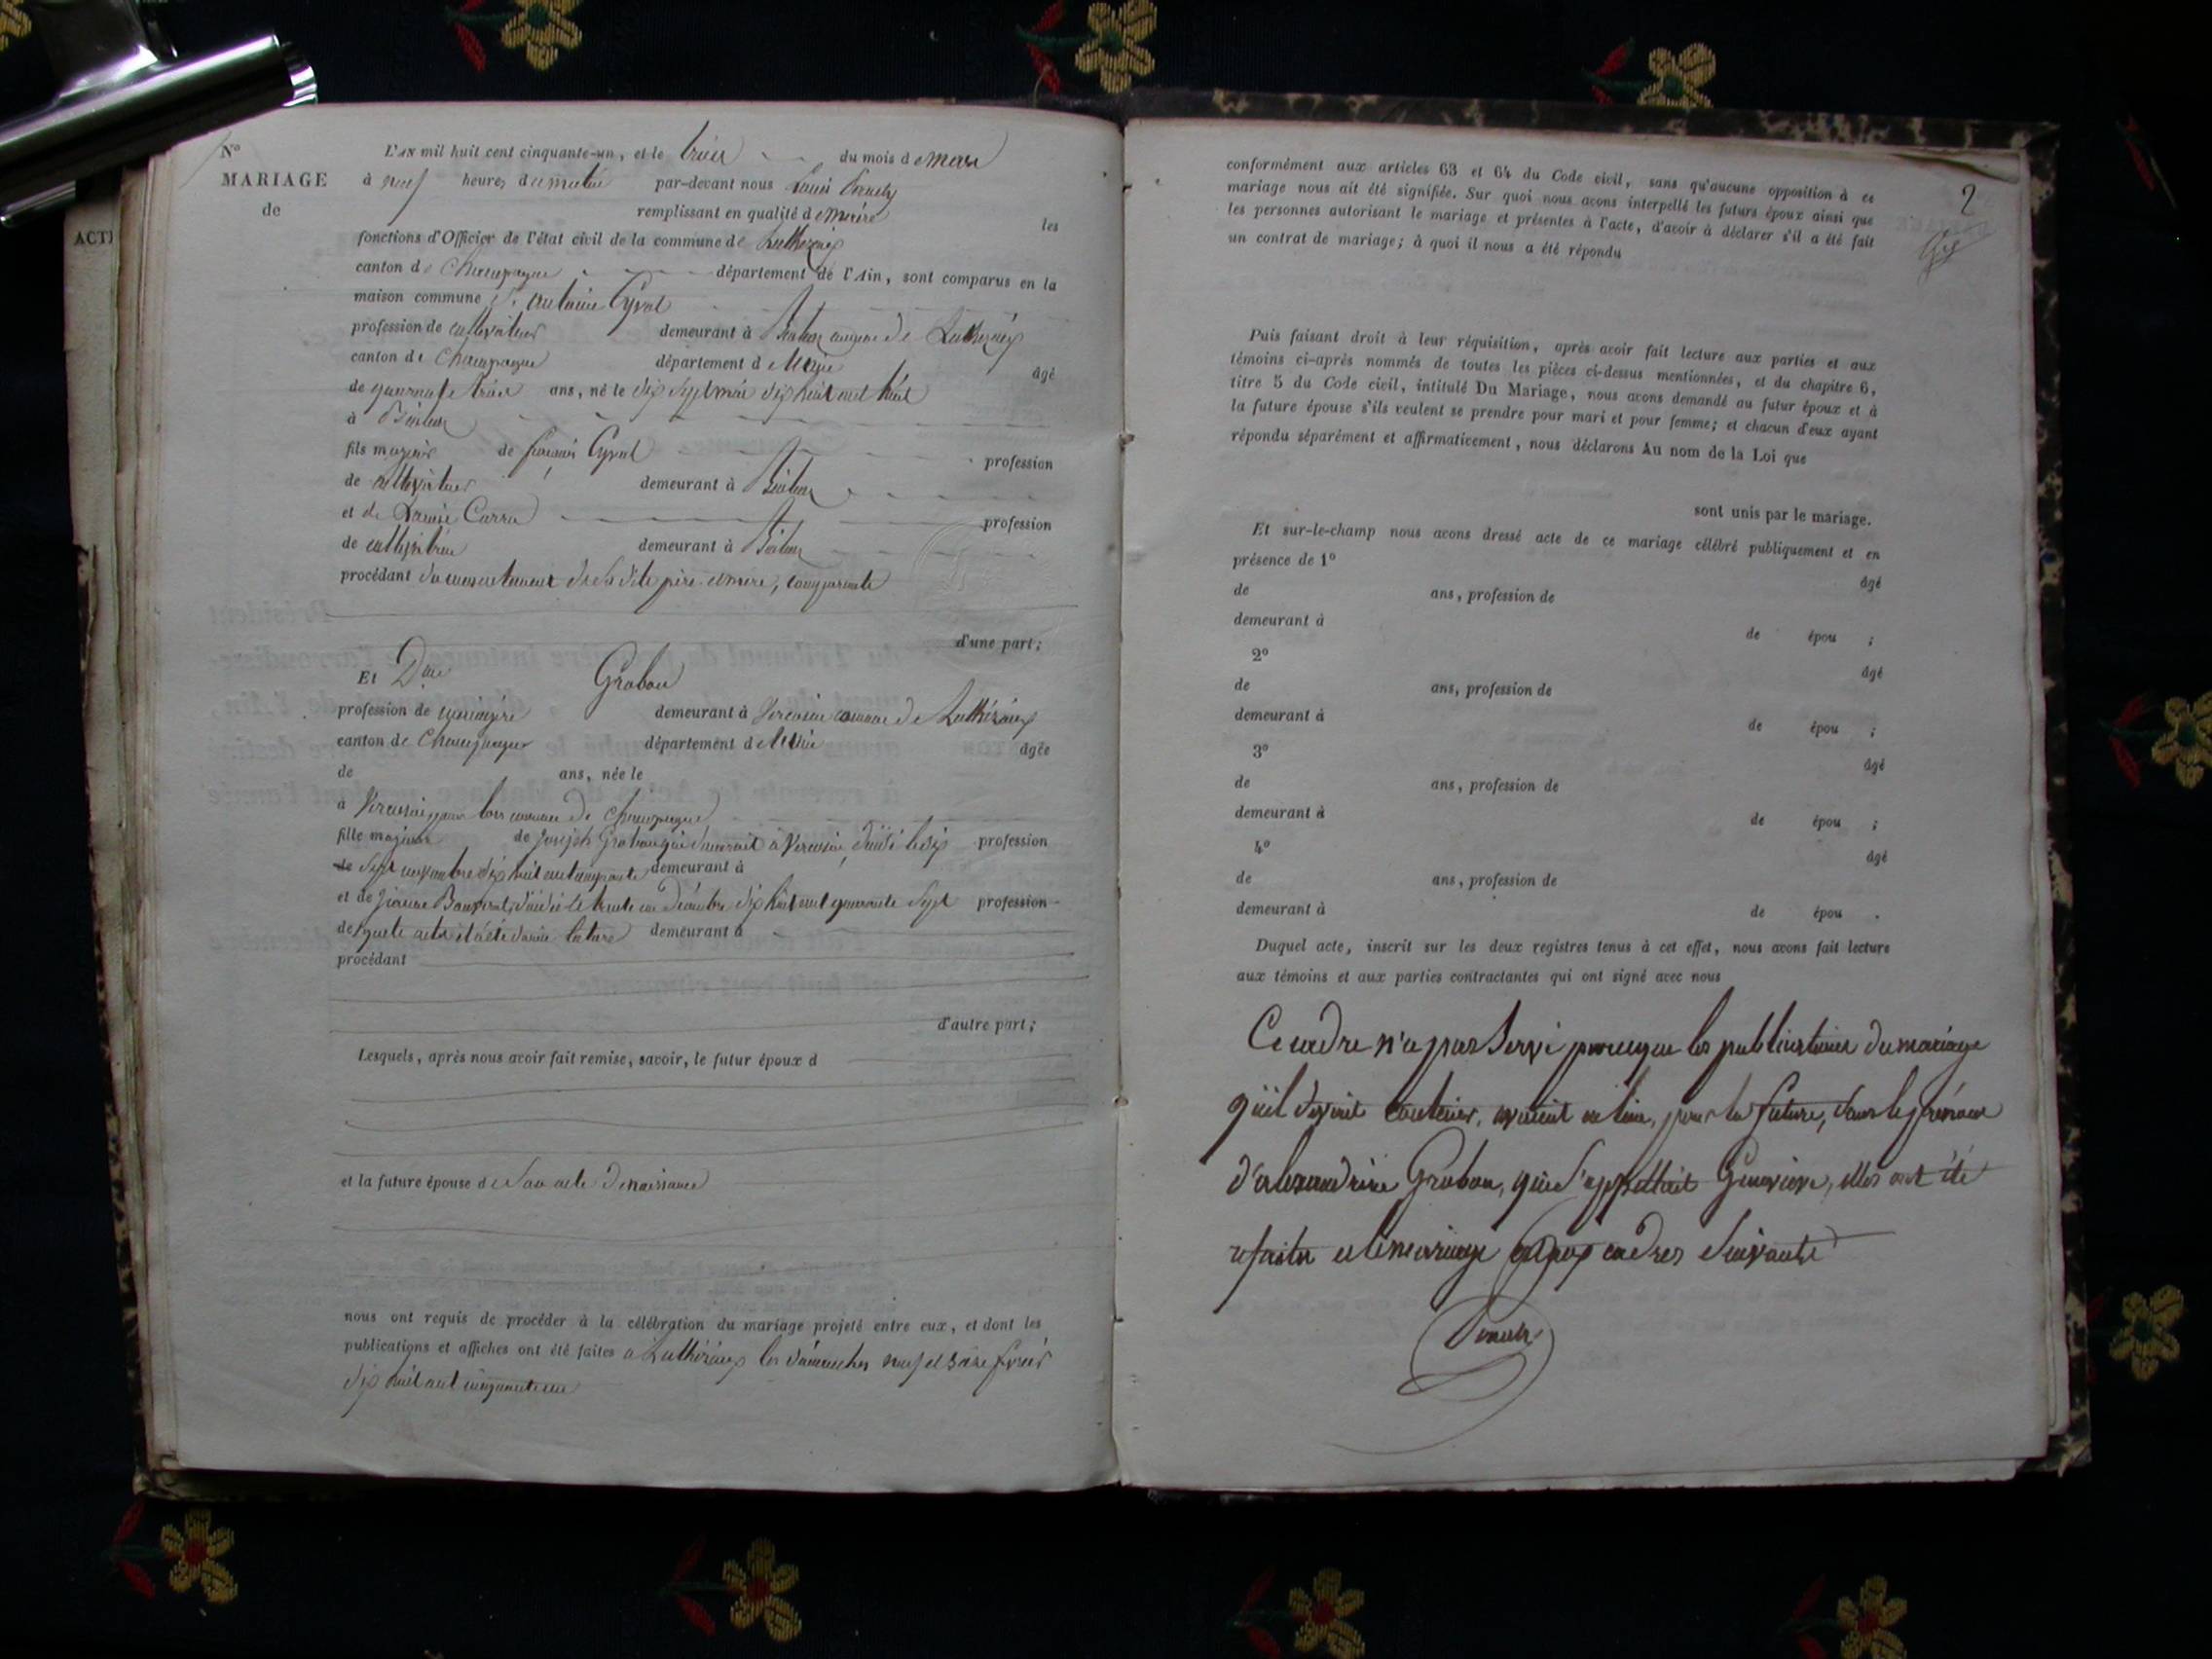 ACTE
N°
MARIAGE
de
L'AN mil huit cent cinquante-un, et le trois du mois de mars
à neuf heures du matin par-devant nous Louis
remplissant en qualité de maire les
fonctions d'Officier de l'état civil de la commune de Luthézieu
canton de Champagne département de l'Ain, sont comparus en la
maison commune Sr. antoine Cyvat
profession de cultivateur demeurant à commune de Luthézieu
canton de Champagne département de
âgé
de quarante trois ans, né le dix sept mai dix huit cent huit
à
fils majeur de françois Cyvat profession
de cultivateur demeurant à
et de Carra profession
de cultivatrice demeurant à
procédant du consentement de ses dits père et mère, comparants
d'une part;
Et Dlle Grobon
profession de ménagère demeurant à commune de Luthézieu
canton de Champagne département de
âgée
de ans, née le
à pour lors commune de Champagne
fille majeure de Joseph Grobon qui demeurait à décédé le dix profession
de sept novembre dix huit cent cinquante demeurant à
et de décédée le trente un décembre dix huit cent quarante sept profession
desquels actes il a été donné lecture demeurant à
procédant
d'autre part;
Lesquels, après nous avoir fait remise, savoir, le futur époux d
et la future épouse de son acte de naissance
nous ont requis de procéder à la célébration du mariage projeté entre eux, et dont les
publications et affiches ont été faites à Luthézieu les dimanches neuf et seize février
dix huit cent cinquante un
2
conformément aux articles 63 et 64 du Code civil, sans qu'aucune opposition à ce
mariage nous ait été signifiée. Sur quoi nous avons interpellé les futurs époux ainsi que
les personnes autorisant le mariage et présentes à l'acte, d'avoir à déclarer s'il a été fait
un contrat de mariage; à quoi il nous a été répondu
Puis faisant droit à leur réquisition, après avoir fait lecture aux parties et aux
témoins ci-après nommés de toutes les pièces ci-dessus mentionnées, et du chapitre 6,
titre 5 du Code civil, intitulé Du Mariage, nous avons demandé au futur époux et à
la future épouse s'ils veulent se prendre pour mari et pour femme; et chacun d'eux ayant
répondu séparément et affirmativement, nous déclarons Au nom de la Loi que
sont unis par le mariage.
Et sur-le-champ nous avons dressé acte de ce mariage célébré publiquement et en
présence de 1°
âgé
de ans, profession de
demeurant à
de épou ;
2°
âgé
de ans, profession de
demeurant à
de épou ;
3°
âgé
de ans, profession de
demeurant à
de épou ;
4°
âgé
de ans, profession de
demeurant à
de épou .
Duquel acte, inscrit sur les deux registres tenus à cet effet, nous avons fait lecture
aux témoins et aux parties contractantes qui ont signé avec nous
Ce cadre n'a pas servi parceque les publications du mariage
qu'il devait contenir, avaient eu lieu, pour la future, sous le prénom
d'alexandrine Grobon, qui s'appellait Geneviève, elles ont été
refaites et le mariage aux cadres suivants